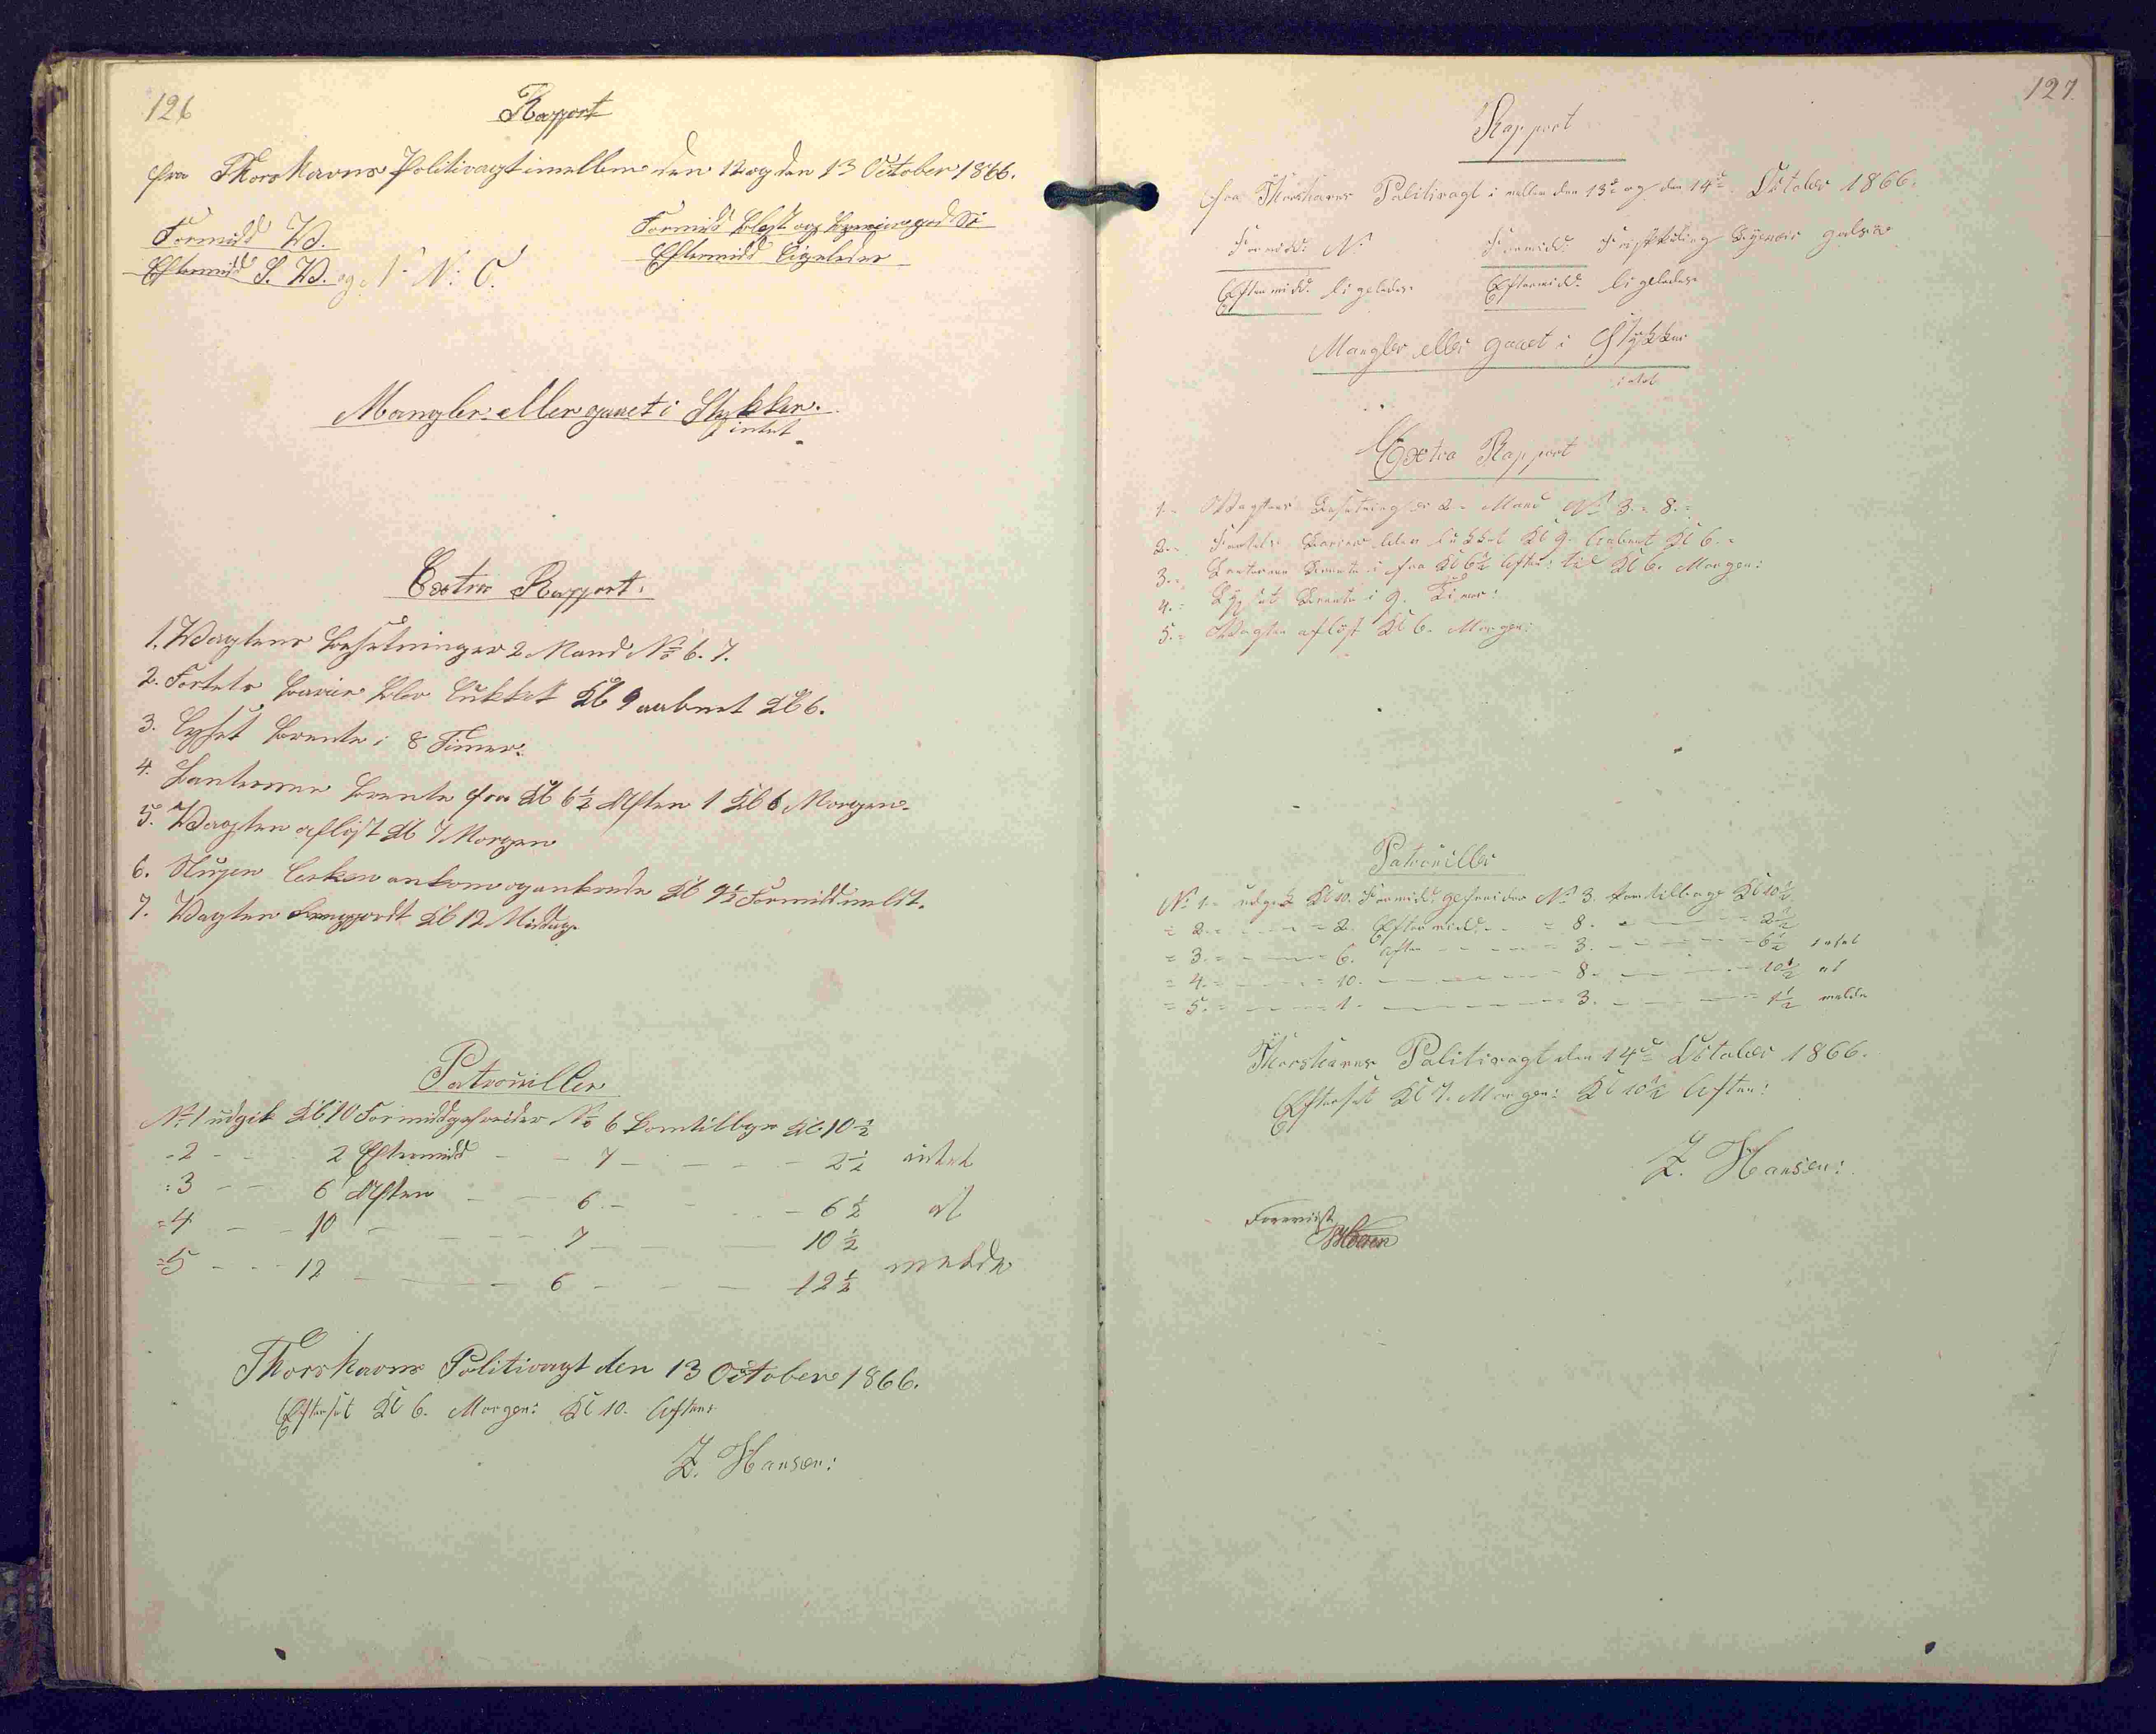 126
Rapport
fra Thorshavns Politivagt imellem den 12 og den 13 October 1866.
Formidd W.
Formidd Blæst og
Eftermidd S. W. og N. O.
Eftermidd Ligeledes
Mangler eller gaaet i Stykker.
intet
Extra Rapport.
1. Vagtens Besetning er 2 Mand No 6. 7.
2. Fortets Barrier blev lukket Kl 9 aabnet Kl 6.
3. Lyset brente i 8 Timer.
4. Lanternen brente fra Kl 6½ Aften Kl 6 Morgen.
5. Vagten afløst Kl 7 Morgen
6. Slupen ankom og ankrede Kl 9½ Formidd meldt.
7. Vagten Kl 12 Middag.
Patrouiller
No 1 udgik Kl. 10 Formidd gefreider No 6 komtilbage Kl. 10½
- 2 - - 2 Eftermidd - - 7 - - - - 2½ intet
: 3 - - 6 Aften - - 6 - - - - 6½ at
= 4 - - 10 - - - - 7 - - 10½
= 5 - - - 12 - - - - 6 - - - 12½ melde
Thorshavns Politivagt den 13 October 1866.
Efterset Kl 6. Morgen: Kl 10. Aften:
Z. Hansen:
127.
Rapport
fra Thorshavns Politivagt i mellem den 13de og den 14de October 1866.
Formidd: N.
Formidd: Friskkuling
Eftermidd. ligeledes.
Eftermidd. ligeledes.
Mangler eller gaaet i Stykker
intet
Extra Rapport
1.- Vagtens Besetning er 2 - Mand No 3. - 8. -
2.- Fortets Barrier blev lukket Kl 9. aabnet Kl 6. -
3.- Lanternen Brente i fra Kl 6½ Aften: til Kl 6. Morgen:
4.- Lyset Brente i 9. Timer:
5.- Vagten afløst Kl 6. Morgen:
Patrouiller
No 1.- udgik Kl 10. Formidd. gefreider No 3. komtilbage Kl 10½
= 2. - - - = 2. Eftermidd. - - = 8. - - - = 2½
= 3. = - - - = 6. Aften - - - - = 3. - - - - = 6½ intet
= 4. = - - - = 10. - - - - - = 8. - - - - = 10½ at
= 5. = - - - = 1. - - - - - = 3. - - - - = 1½ melde
Thorshavns Politivagt den 14de October 1866.
Efterset Kl 7. Morgen: Kl 10½ Aften:
Z. Hansen:
Foreviist